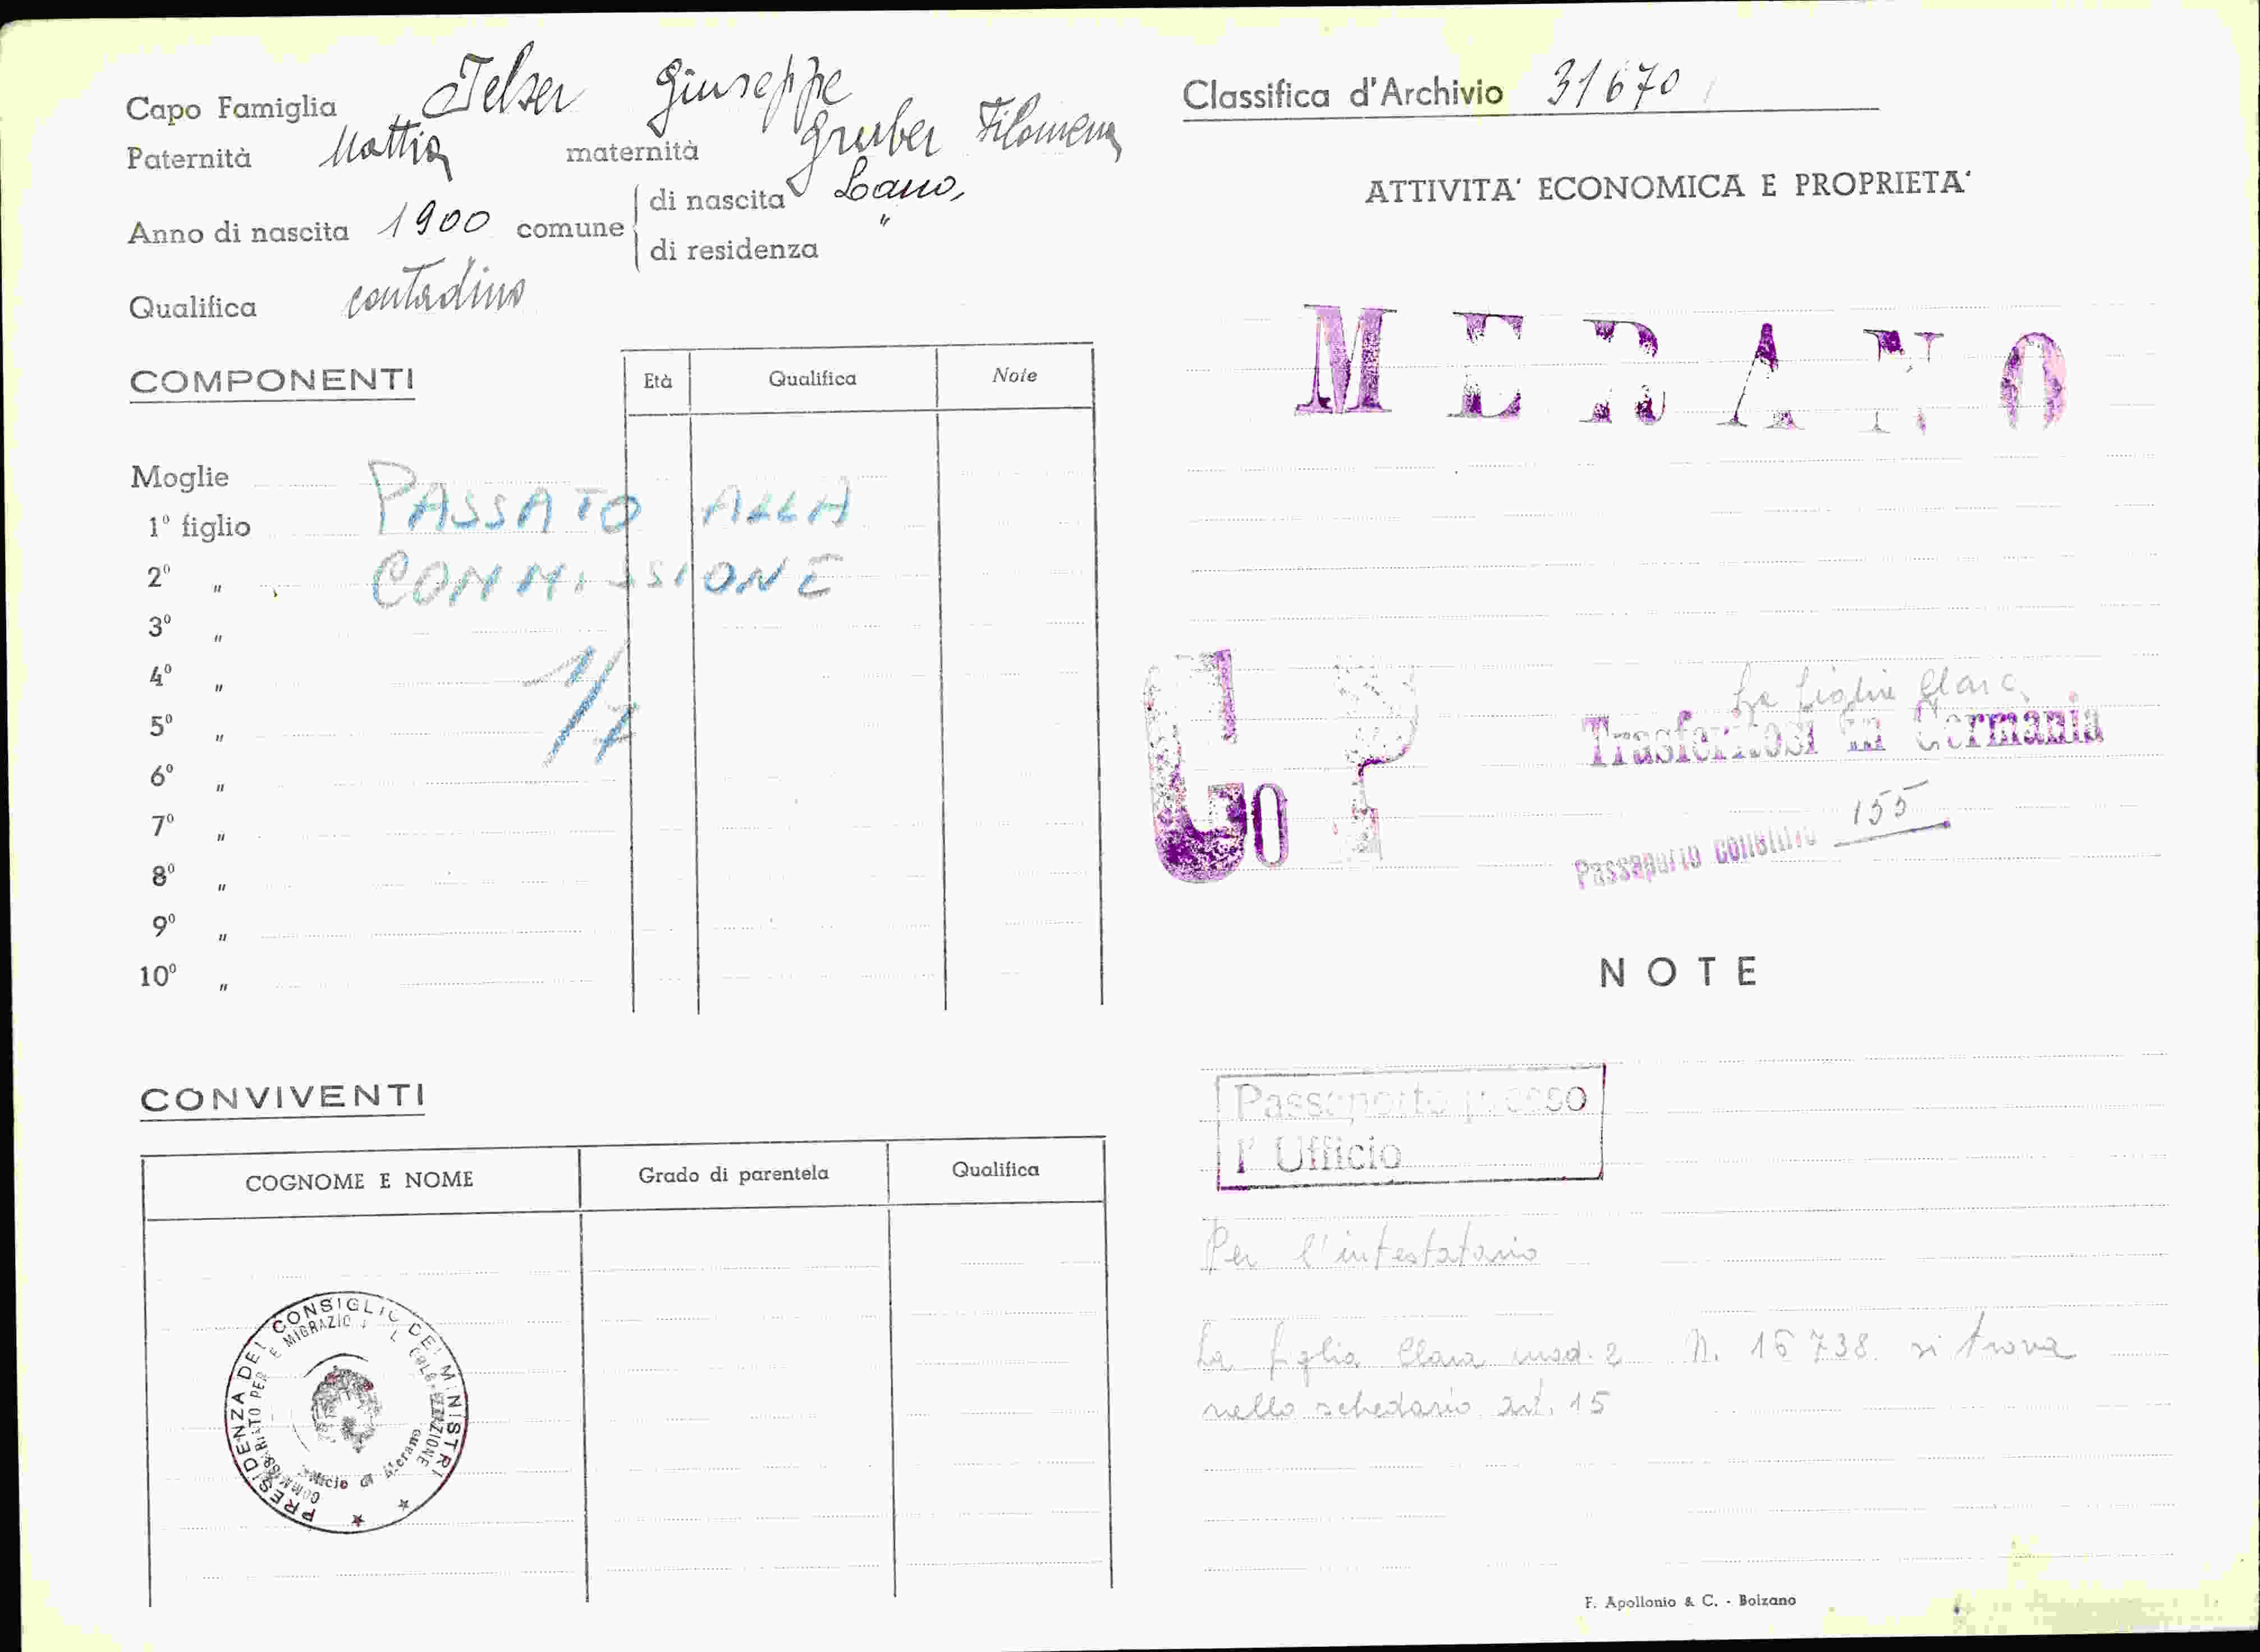 Capo Famiglia Telser Giuseppe
Paternità Mattia maternità Gruber Filomena
Anno di nascita 1900 comune di nascita Lana,
di residenza "
Qualifica contadino
COMPONENTI
Età Qualifica Note
Moglie
1º figlio
2º "
3º "
4º "
5º "
6º "
7º "
8º "
9º "
10º "
PASSATO ALLA
COMMISSIONE
1/7
CONVIVENTI
COGNOME E NOME Grado di parentela Qualifica
PRESIDENZA DEL CONSIGLIO DEI MINISTRI
Ufficio di Merano
Classifica d'Archivio 31670
ATTIVITA' ECONOMICA E PROPRIETA'
MERANO
La figlia Clara
Trasferitosi in Germania
Passaporto 155
NOTE
Passaporto presso
l' Ufficio
Per l'intestatario
La figlia Clara mod. 2 N. 16738 si trova
nello schedario art. 15
F. Apollonio & C. - Bolzano